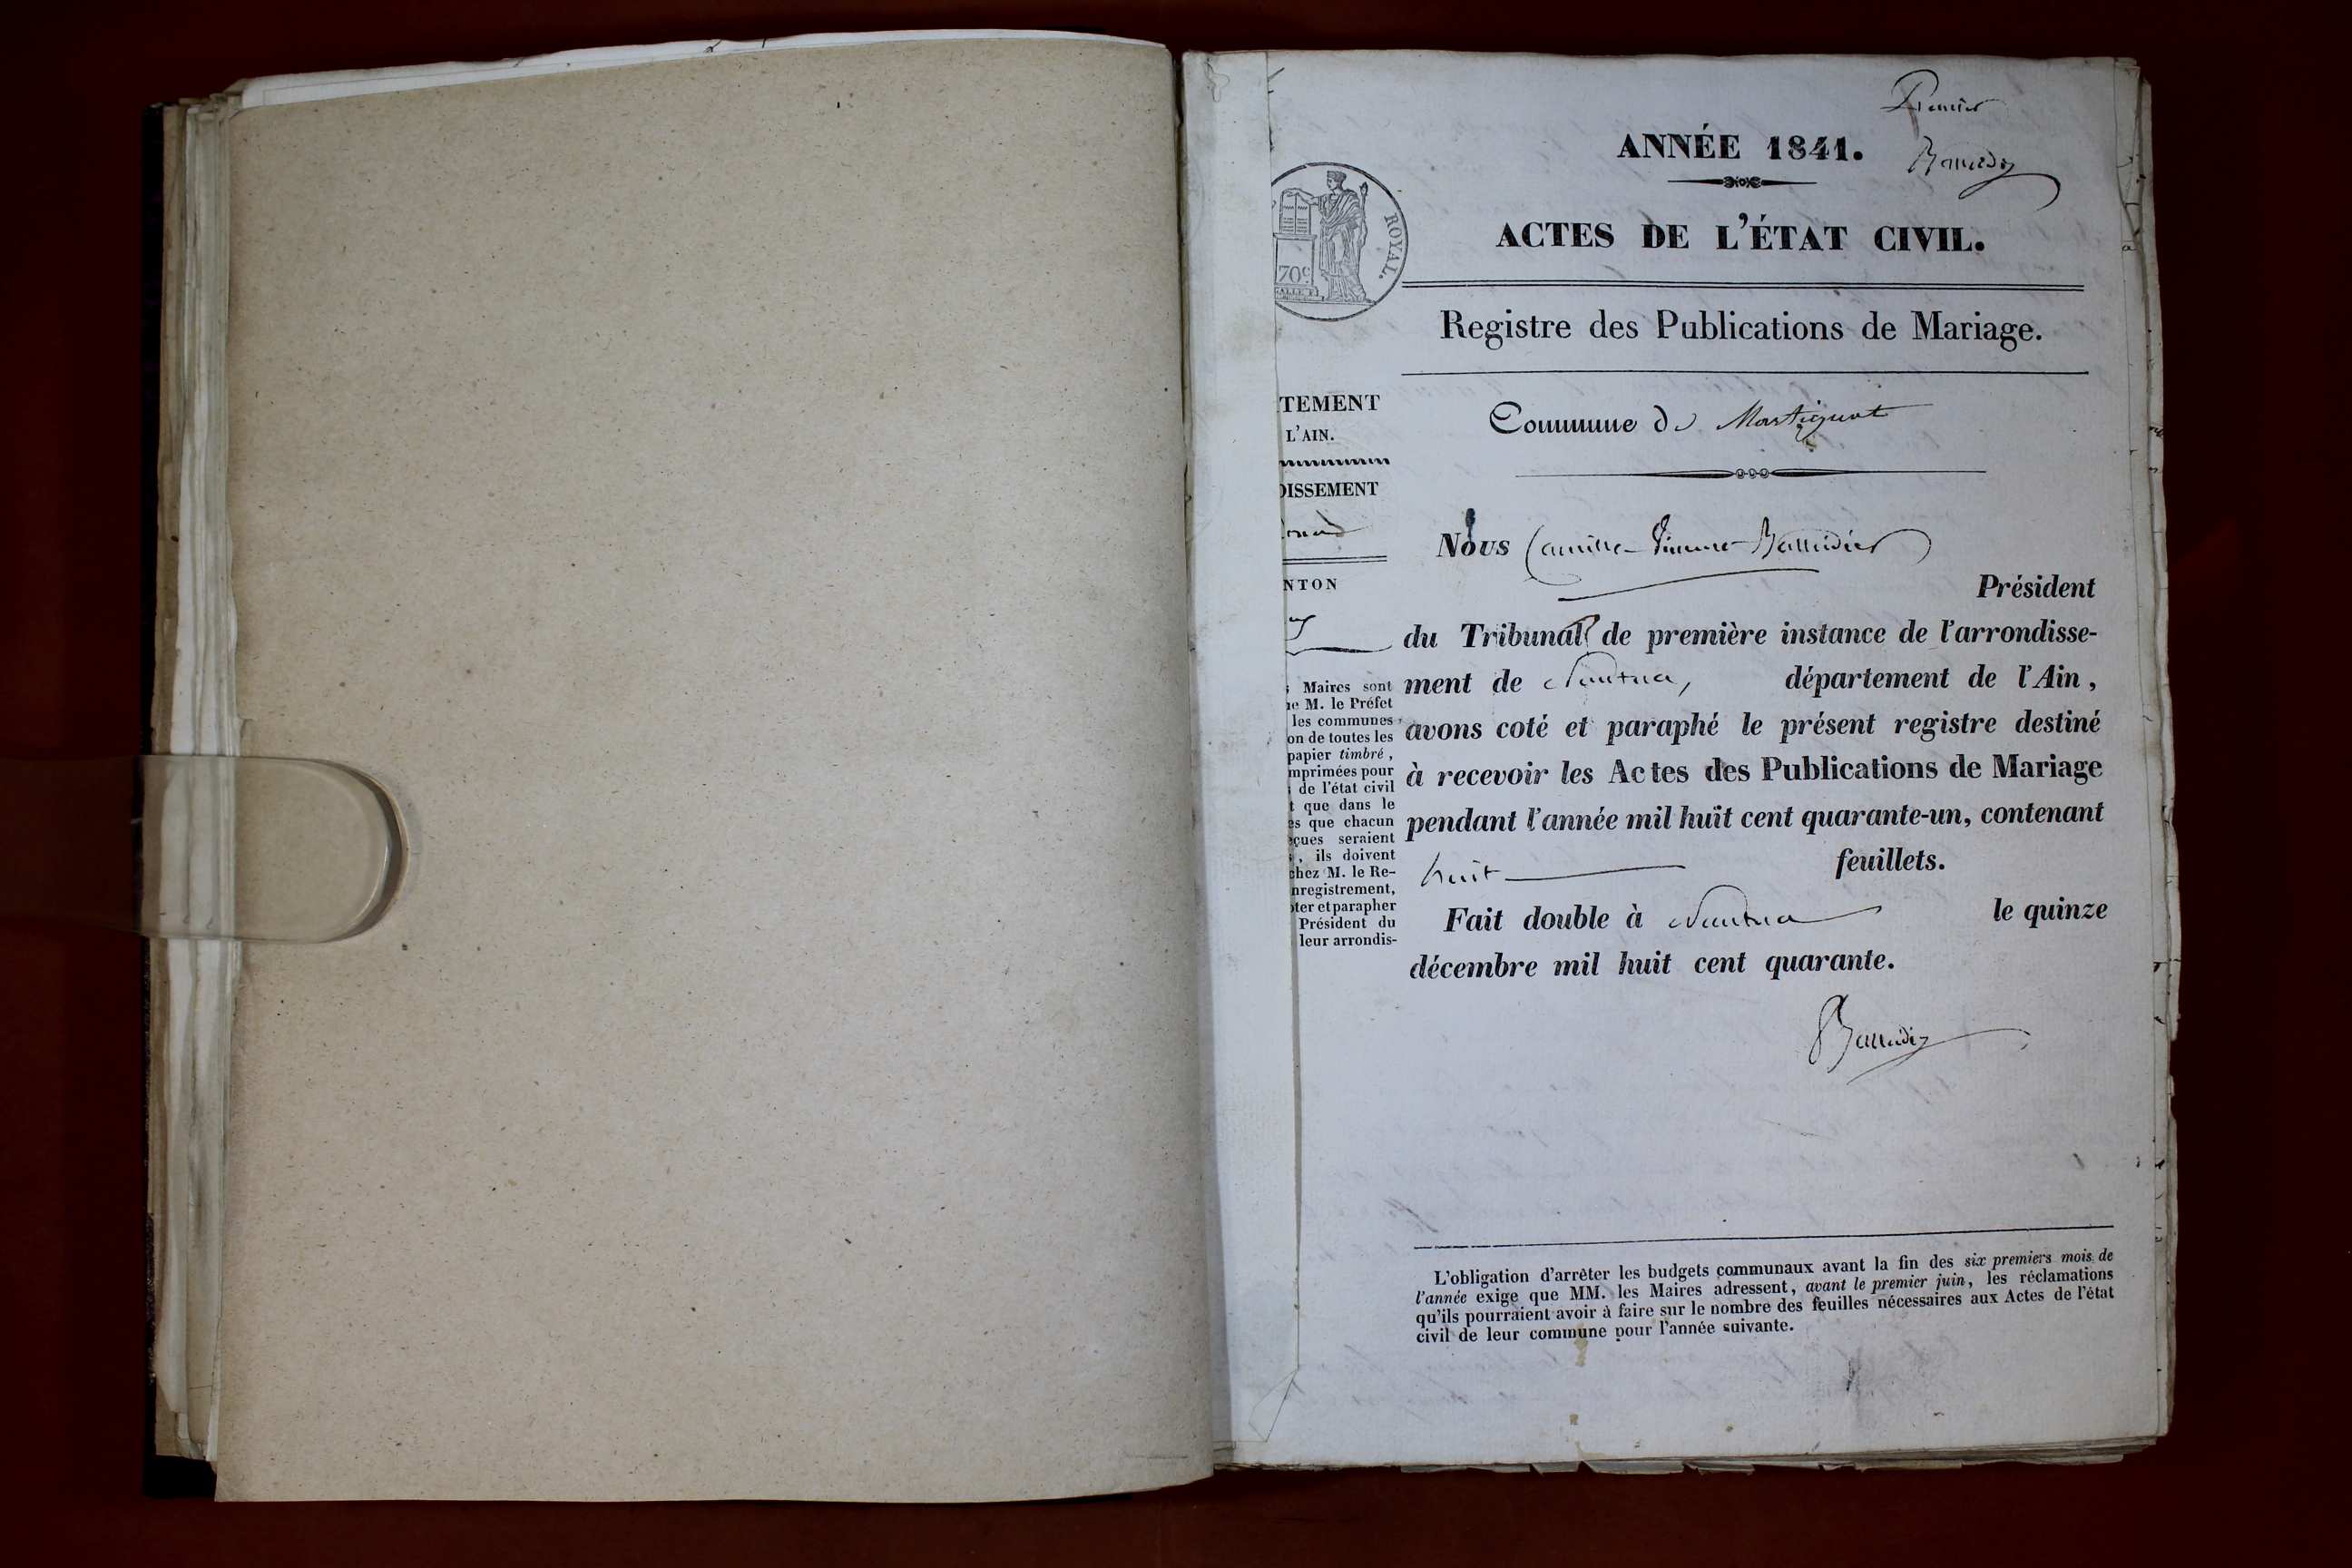 Premier
ANNÉE 1841.
ACTES DE L'ÉTAT CIVIL.
ROYAL.
70c
Registre des Publications de Mariage.
TEMENT
L'AIN.
DISSEMENT
NTON
Commune de Martignat
Nous Camille
Président
du Tribunal de première instance de l'arrondisse-
ment de Nantua, département de l'Ain,
avons coté et paraphé le présent registre destiné
à recevoir les Actes des Publications de Mariage
pendant l'année mil huit cent quarante-un, contenant
huit feuillets.
Fait double à Nantua le quinze
décembre mil huit cent quarante.
Maires sont
M. le Préfet
les communes
on de toutes les
papier timbré,
mprimées pour
de l'état civil
t que dans le
es que chacun
çues seraient
, ils doivent
chez M. le Re-
nregistrement,
ter et parapher
Président du
leur arrondis-
L'obligation d'arrêter les budgets communaux avant la fin des six premiers mois de
l'année exige que MM. les Maires adressent, avant le premier juin, les réclamations
qu'ils pourraient avoir à faire sur le nombre des feuilles nécessaires aux Actes de l'état
civil de leur commune pour l'année suivante.